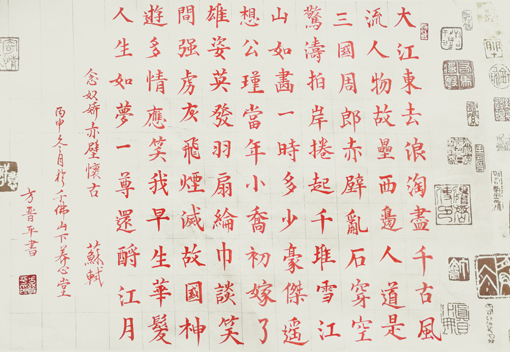 大江東去浪淘盡千古風
流人物故壘西邊人道是
三國周郎赤壁亂石穿空
驚濤拍岸捲起千堆雪江
山如畫一時多少豪傑遙
想公瑾當年小喬初嫁了
雄姿英發羽扇綸巾談笑
間强虜灰飛煙滅故國神
遊多情應笑我早生華髮
人生如夢一尊還酹江月
念奴嬌赤壁懷古 蘇軾
丙申冬月於千佛山下養心堂
方晉平書